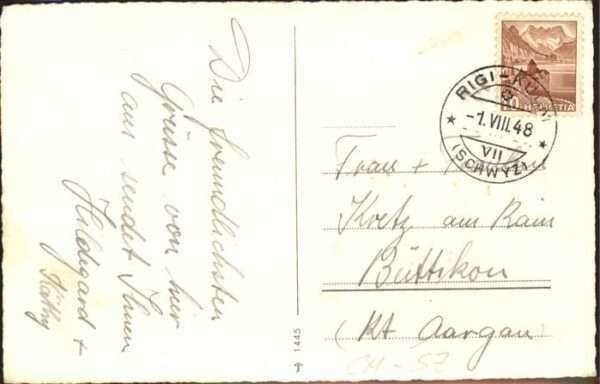 Die freundlichsten
Grüsse von hier
aus sendet Ihnen
Hildegard +
Käthy
1445
10 HELVETIA
RIGI-KULM
-1.VIII.48
VII
(SCHWYZ)
Frau +
Kretz am Rain
Büttikon
(Kt Aargau)
CH-SZ